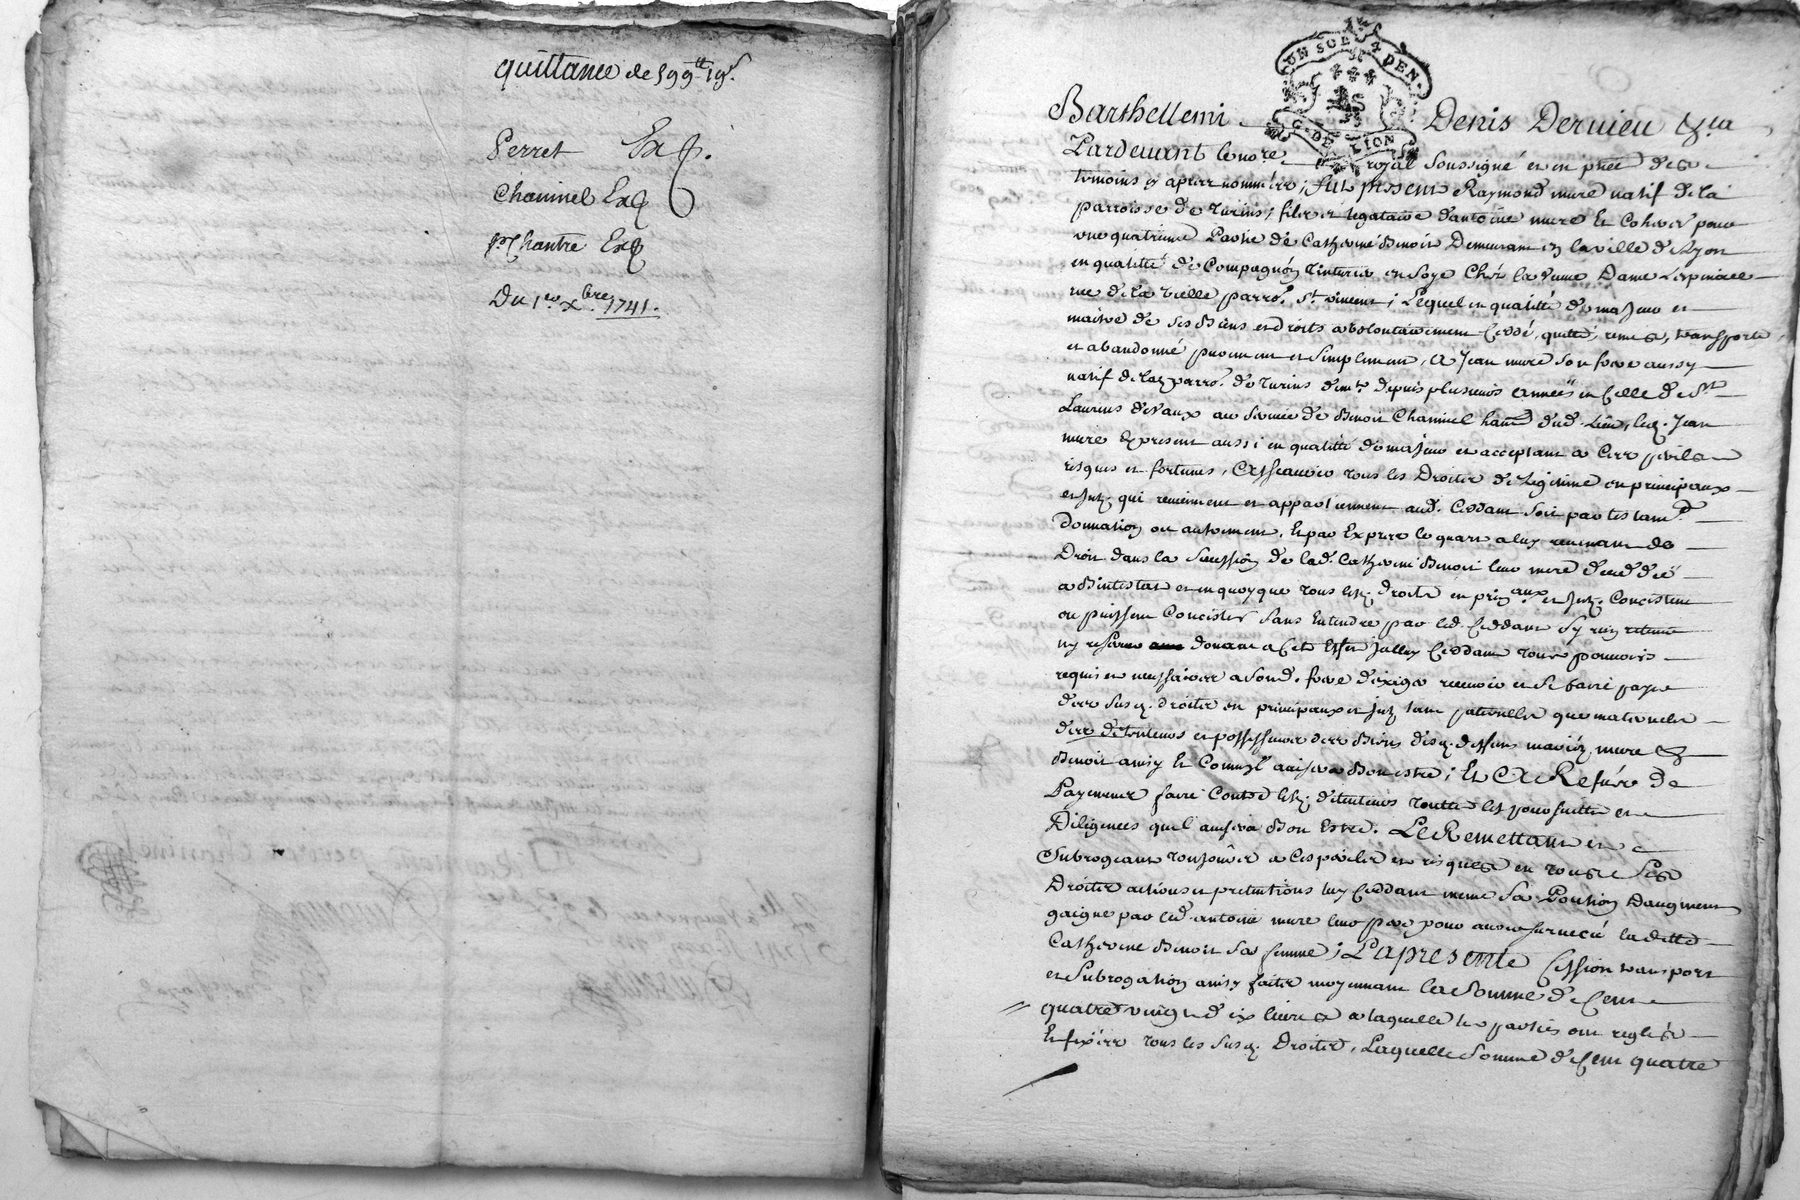 quittance de 599tt 19s.
Perret Ex
Chaninel Ex
pr Chantre Ex
Du 1er xbre 1741.
UN SOL 4 DEN.
G. DE LION
Barthellemi Denis Dervieu
Pardevant le nore royal soussigné et en pnce des
temoins cy apres nommés, fut present Raymond mure natif de la
parroisse de Turins, fils et legataire d'antoine mure et coheritier pour
une quatrieme Partie de Catherine Benoit Demeurant en la ville de Lyon
en qualité de Compagnon Tinturier en soye Chés la veuve Dame Lespinasse
rue de la vielle parrse St vincent, Lequel en qualité de majeur et
maitre de ses Biens et droits a volontairement Ceddé, quitté, remis, transporté
et abandonné purement et simplement, a Jean mure son frere aussy
natif de la parrse de Turins demt depuis plusieurs années en Celle de St
Laurens de Vaux au service de Benoit Chaninel habt dud. Lieu, led. Jean
mure cy present aussi en qualité de majeur et acceptant a ses perils
risques et fortunes, Assavoir tous les Droits de Legitime en principaux
et Intz. qui reviennent et appartiennent aud. Ceddant soit par testamt
donnation ou autrement, Et par Exprez le quart a luy revenant de
Droit dans la succession de lad. Catherine Benoit leur mere decedée
abintestat et en quoy que tous lesd. droits en prinaux et Intz. Concistent
ou puissent Concister sans Entendre par led. Ceddant s'y rien retenir
ny reserver donnant a Cet Effet Celluy Ceddant tous pouvoirs
requis et necessaires a sond. frere d'exiger recevoir et se faire payer
des susd. droits en principaux et Intz tant paternels que maternels
des detenteurs et possesseurs des Biens desd. deffuns mariés mure &
Benoit ainsy Et Comme avisera Bon estre; Et A Refus de
Payement faire Contre lesd. detenteurs touttes les poursuittes et
Diligences quil avisera Bon Estre. Le Remettant et
Subrogeant toujours a ses perils et risques en tous ses
Droits actions et pretentions luy Ceddant meme sa Portion Daugment
gaigné par led. antoine mure leur pere pour avoir survecu ladite
Catherine Benoit sa femme; La presente Cession transport
et subrogation ainsy faitte moyennant la somme de Cent
quatre vingt dix livres a laquelle les parties ont reglés
Et fixés tous les susd. Droits, Laquelle somme de Cent quatre